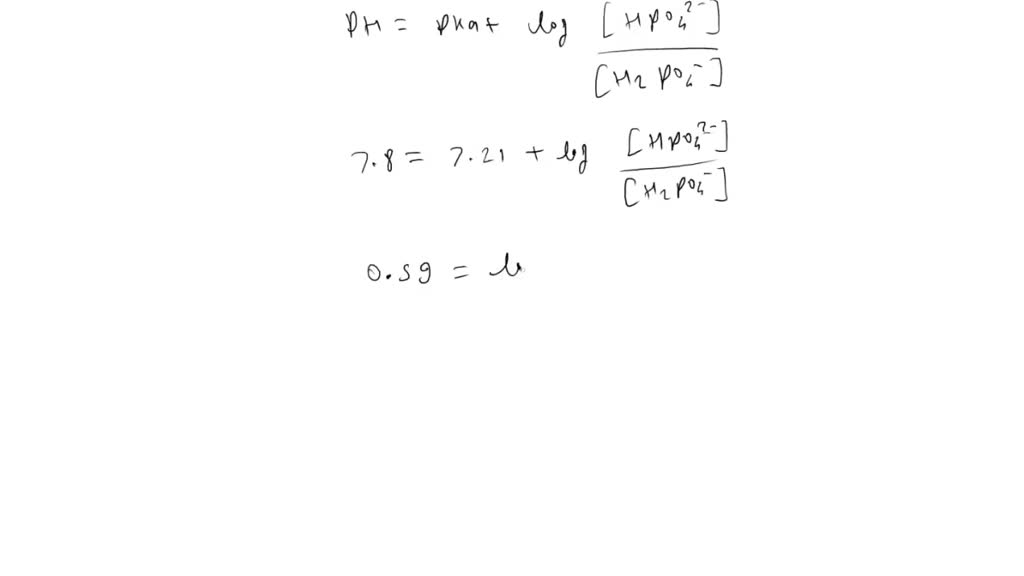 pH = pKa + log [HPO₄²⁻] / [H₂PO₄⁻]
7.8 = 7.21 + log [HPO₄²⁻] / [H₂PO₄⁻]
0.59 = lo